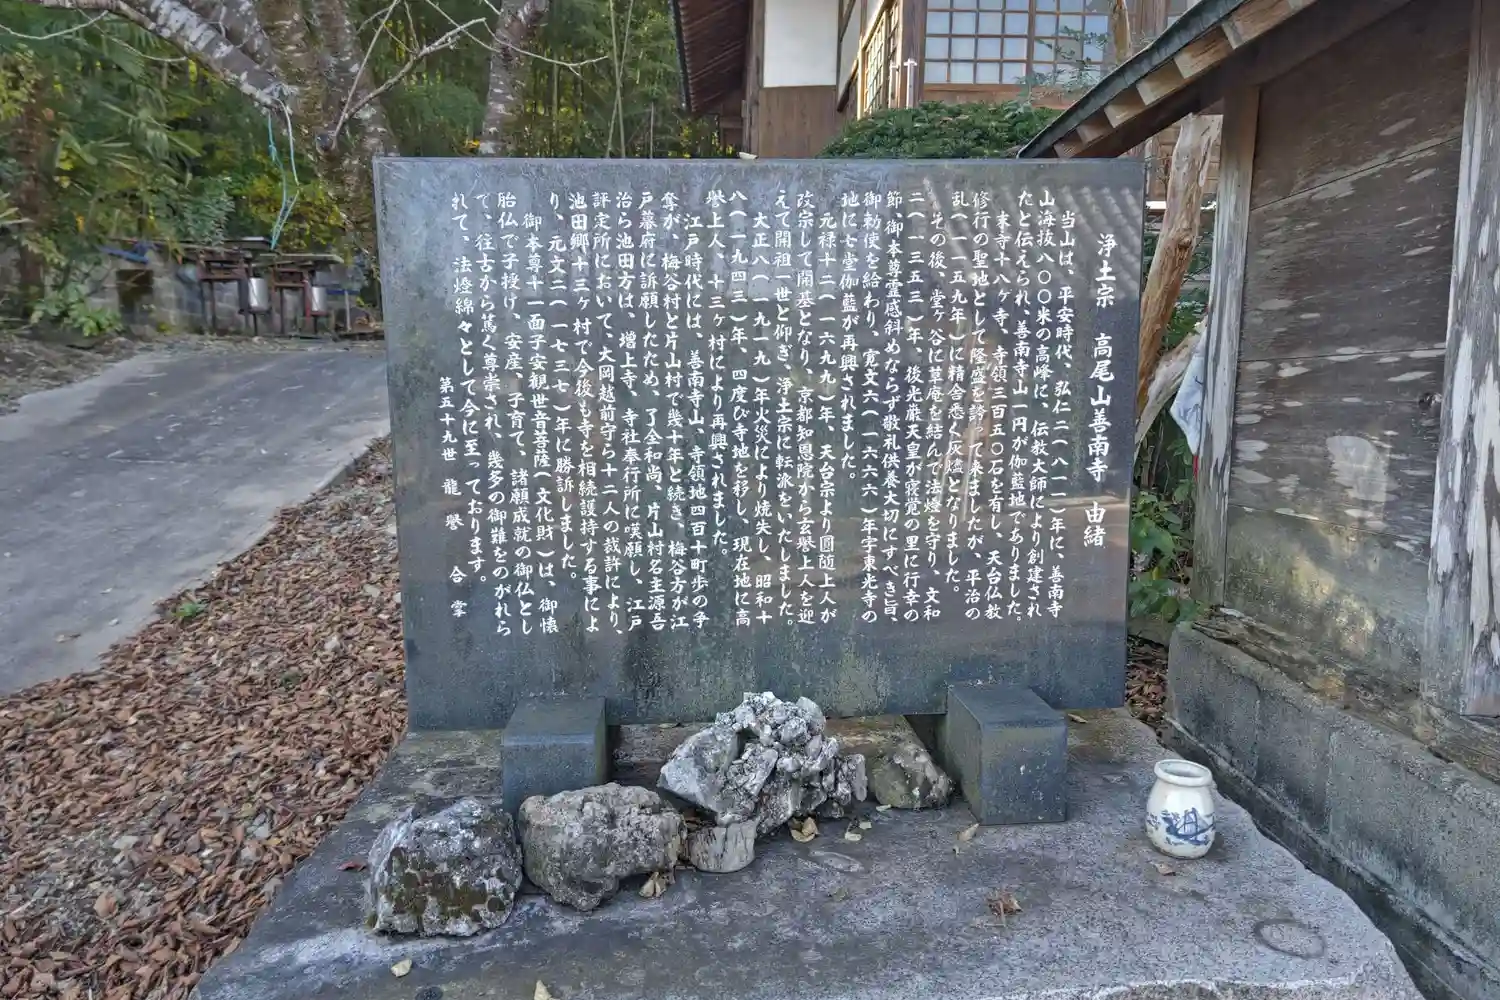 浄土宗 高尾山善南寺 由緒
当山は、平安時代、弘仁二(八一一)年に、善南寺
山海抜八〇〇米の高峰に、伝教大師により創建され
たと伝えられ、善南寺山一円が伽藍地でありました。
末寺十八ヶ寺、寺領三百五〇石を有し、天台仏教
修行の聖地として隆盛を誇って来ましたが、平治の
乱(一一五九年)に精舎悉く灰燼となりました。
その後、堂ヶ谷に草庵を結んで法燈を守り、文和
二(一三五三)年、後光厳天皇が寝覚の里に行幸の
節、御本尊霊感斜めならず敬礼供養大切にすべき旨、
御勅使を給わり、寛文六(一六六六)年字東光寺の
地に七堂伽藍が再興されました。
元禄十二(一六九九)年、天台宗より圓随上人が
改宗して開基となり、京都知恩院から玄誉上人を迎
えて開祖一世と仰ぎ、浄土宗に転派をいたしました。
大正八(一九一九)年火災により焼失し、昭和十
八(一九四三)年、四度び寺地を移し、現在地に高
誉上人、十三ヶ村により再興されました。
江戸時代には、善南寺山、寺領地四百十町歩の争
奪が、梅谷村と片山村で幾十年と続き、梅谷方が江
戸幕府に訴願したため、了全和尚、片山村名主源吾
治ら池田方は、増上寺、寺社奉行所に嘆願し、江戸
評定所において、大岡越前守ら十二人の裁許により、
池田郷十三ヶ村で今後も寺を相続護持する事によ
り、元文二(一七三七)年に勝訴しました。
御本尊十一面子安観世音菩薩(文化財)は、御懐
胎仏で子授け、安産、子育て、諸願成就の御仏とし
て、往古から篤く尊崇され、幾多の御難をのがれら
れて、法燈綿々として今に至っております。
第五十九世 龍誉 合掌